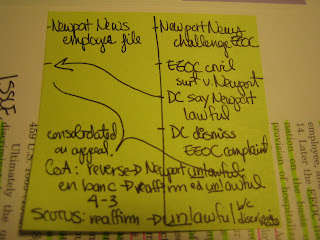 - Newport News employee file
- Newport News challenge EEOC
- EEOC civil suit v. Newport
- DC say Newport lawful
- DC dismiss EEOC complaint
consolidated on appeal.
CoA: reverse → Newport unlawful
en banc → reaffirmed unlawful
4-3
SCOTUS: reaffirm → unlawful b/c discrim
ISSUE
459 U.S.
Ultimately, the
14. Later the EEOC
provisions of